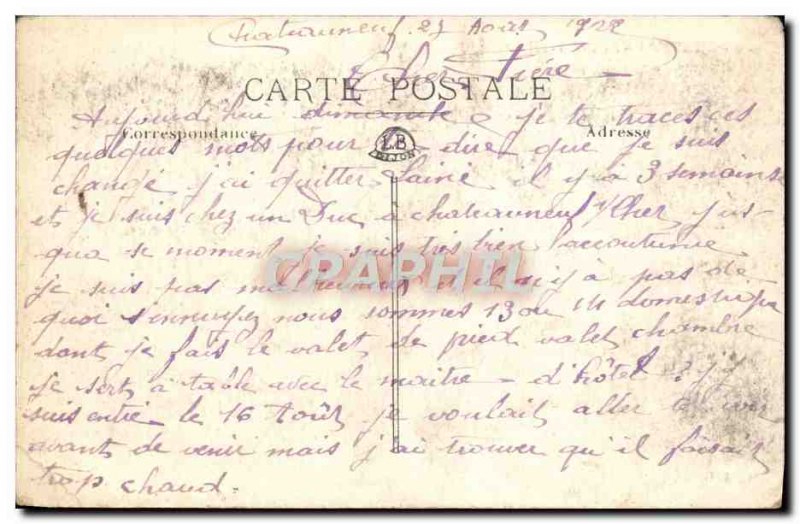 Chateauneuf 27 Aout 1922
Cher Frère
CARTE POSTALE
Aujourd'hui dimanche je te traces ces
Correspondance
LB
DIJON
Adresse
quelques mots pour te dire que je suis
changé j'ai quitter il y a 3 semaines
et je suis chez un Duc a chateauneuf s/Cher jus-
qua se moment je suis très bien accoutumé
CPARPHIL
je suis pas malheureux et il n'y à pas de
quoi s'ennuyez nous sommes 13 ou 14 domestique
dont je fais le valet de pied valet chambre
je sert à table avec le maitre - d'hôtel
suis entré le 16 Août je voulait aller te voir
avant de venir mais j'ai trouver qu'il faisait
trop chaud.